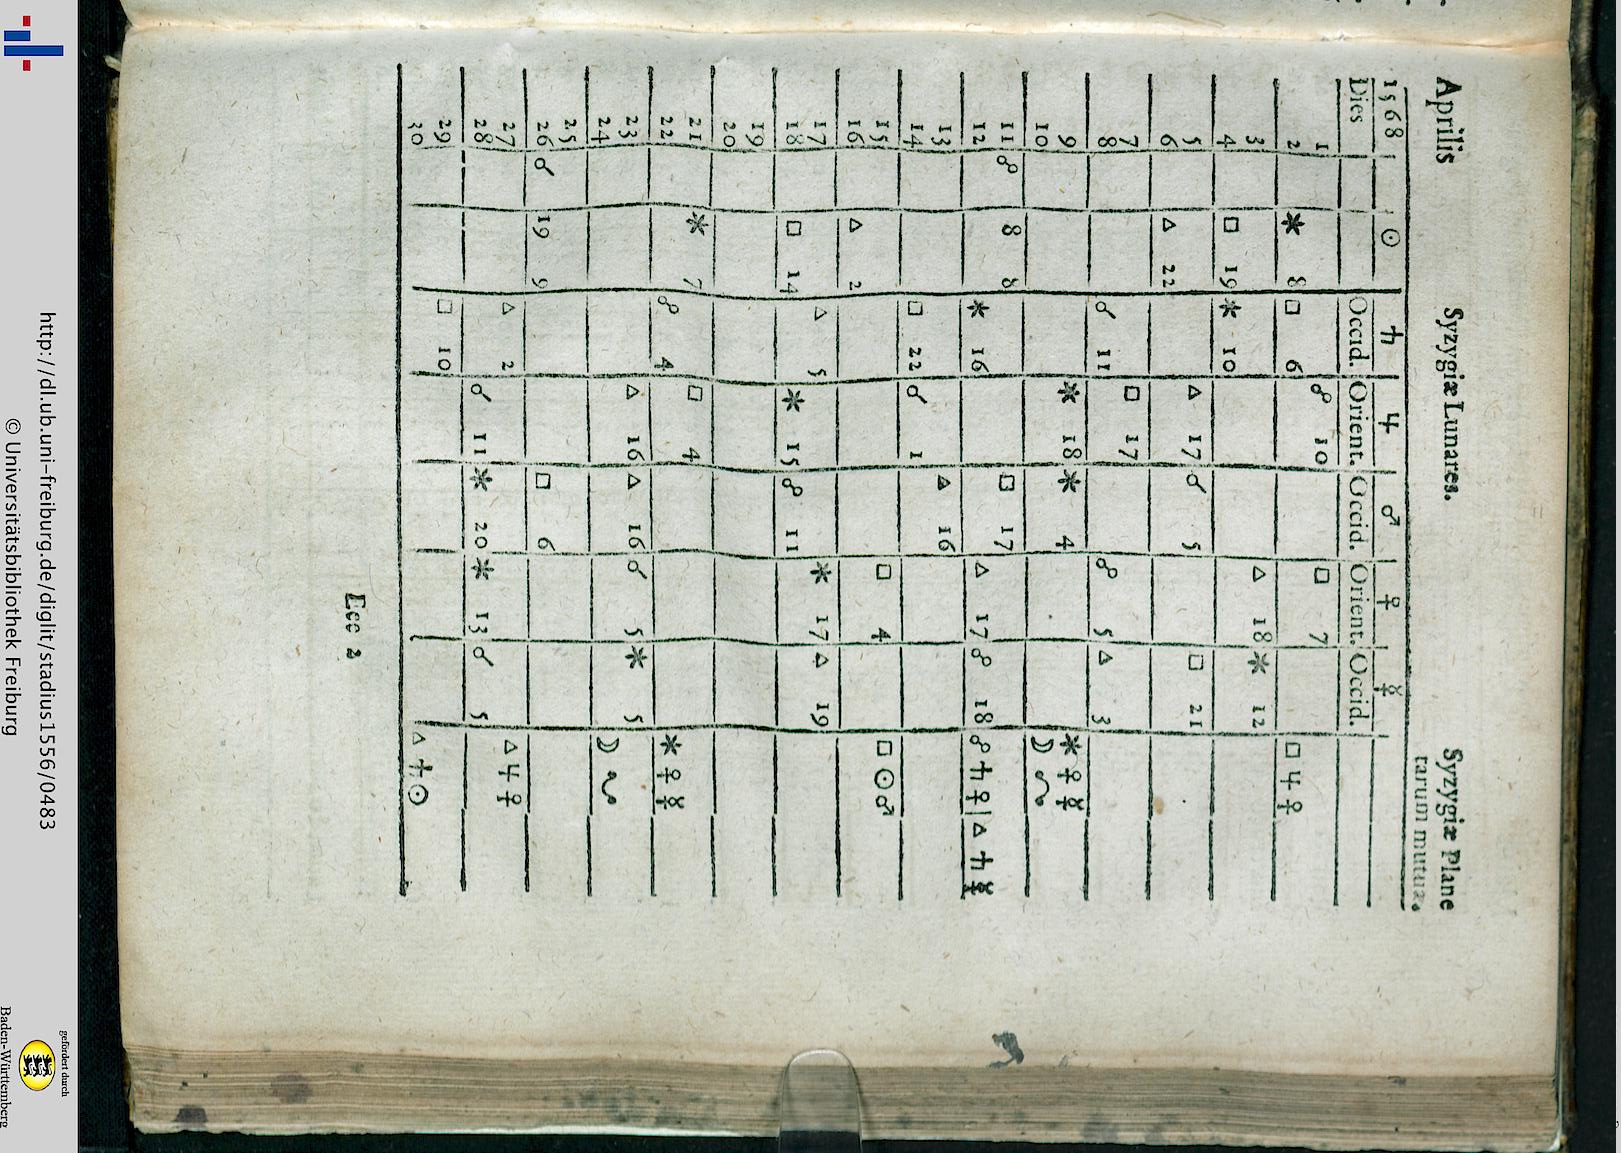 Aprilis Syzygiæ Lunares. Syzygiæ Plane
tarum mutuæ.
1568 ☉ ♄ ♃ ♂ ♀ ☿
Dies Occid. Orient. Occid. Orient. Occid.
1 ☍ 10 □ 7
2 ✶ 8 □ 6 □ ♃ ♀
3 △ 18 ✶ 12
4 □ 19 ✶ 10
5 △ 17 ☌ 5 □ 21
6 △ 22
7 □ 17
8 ☌ 11 ☍ 5 △ 3
9 ✶ 18 ✶ 4 ✶ ♀ ☿
10 ☽
11 ☍ 8 8 □ 17
12 ✶ 16 △ 17 ☍ 18 ☍ ♄ ♀ | △ ♄ ☿
13 △ 16
14 □ 22 ☌ 1
15 □ 4 □ ☉ ♂
16 △ 2
17 △ 5 ✶ 17 △ 19
18 □ 14 ✶ 15 ☍ 11
19
20
21 ✶ 7 □ 4
22 ☍ 4 ✶ ♀ ☿
23 △ 16 △ 16 ☌ 5 ✶ 5
24 ☽
25
26 ☌ 19 9 □ 6
27 △ 2 △ ♃ ♀
28 ☌ 11 ✶ 20 ✶ 13 ☌ 5
29 □ 10
30 △ ♄ ☉
Eee 2
http://dl.ub.uni-freiburg.de/diglit/stadius1556/0483
© Universitätsbibliothek Freiburg
gefördert durch
Baden-Württemberg